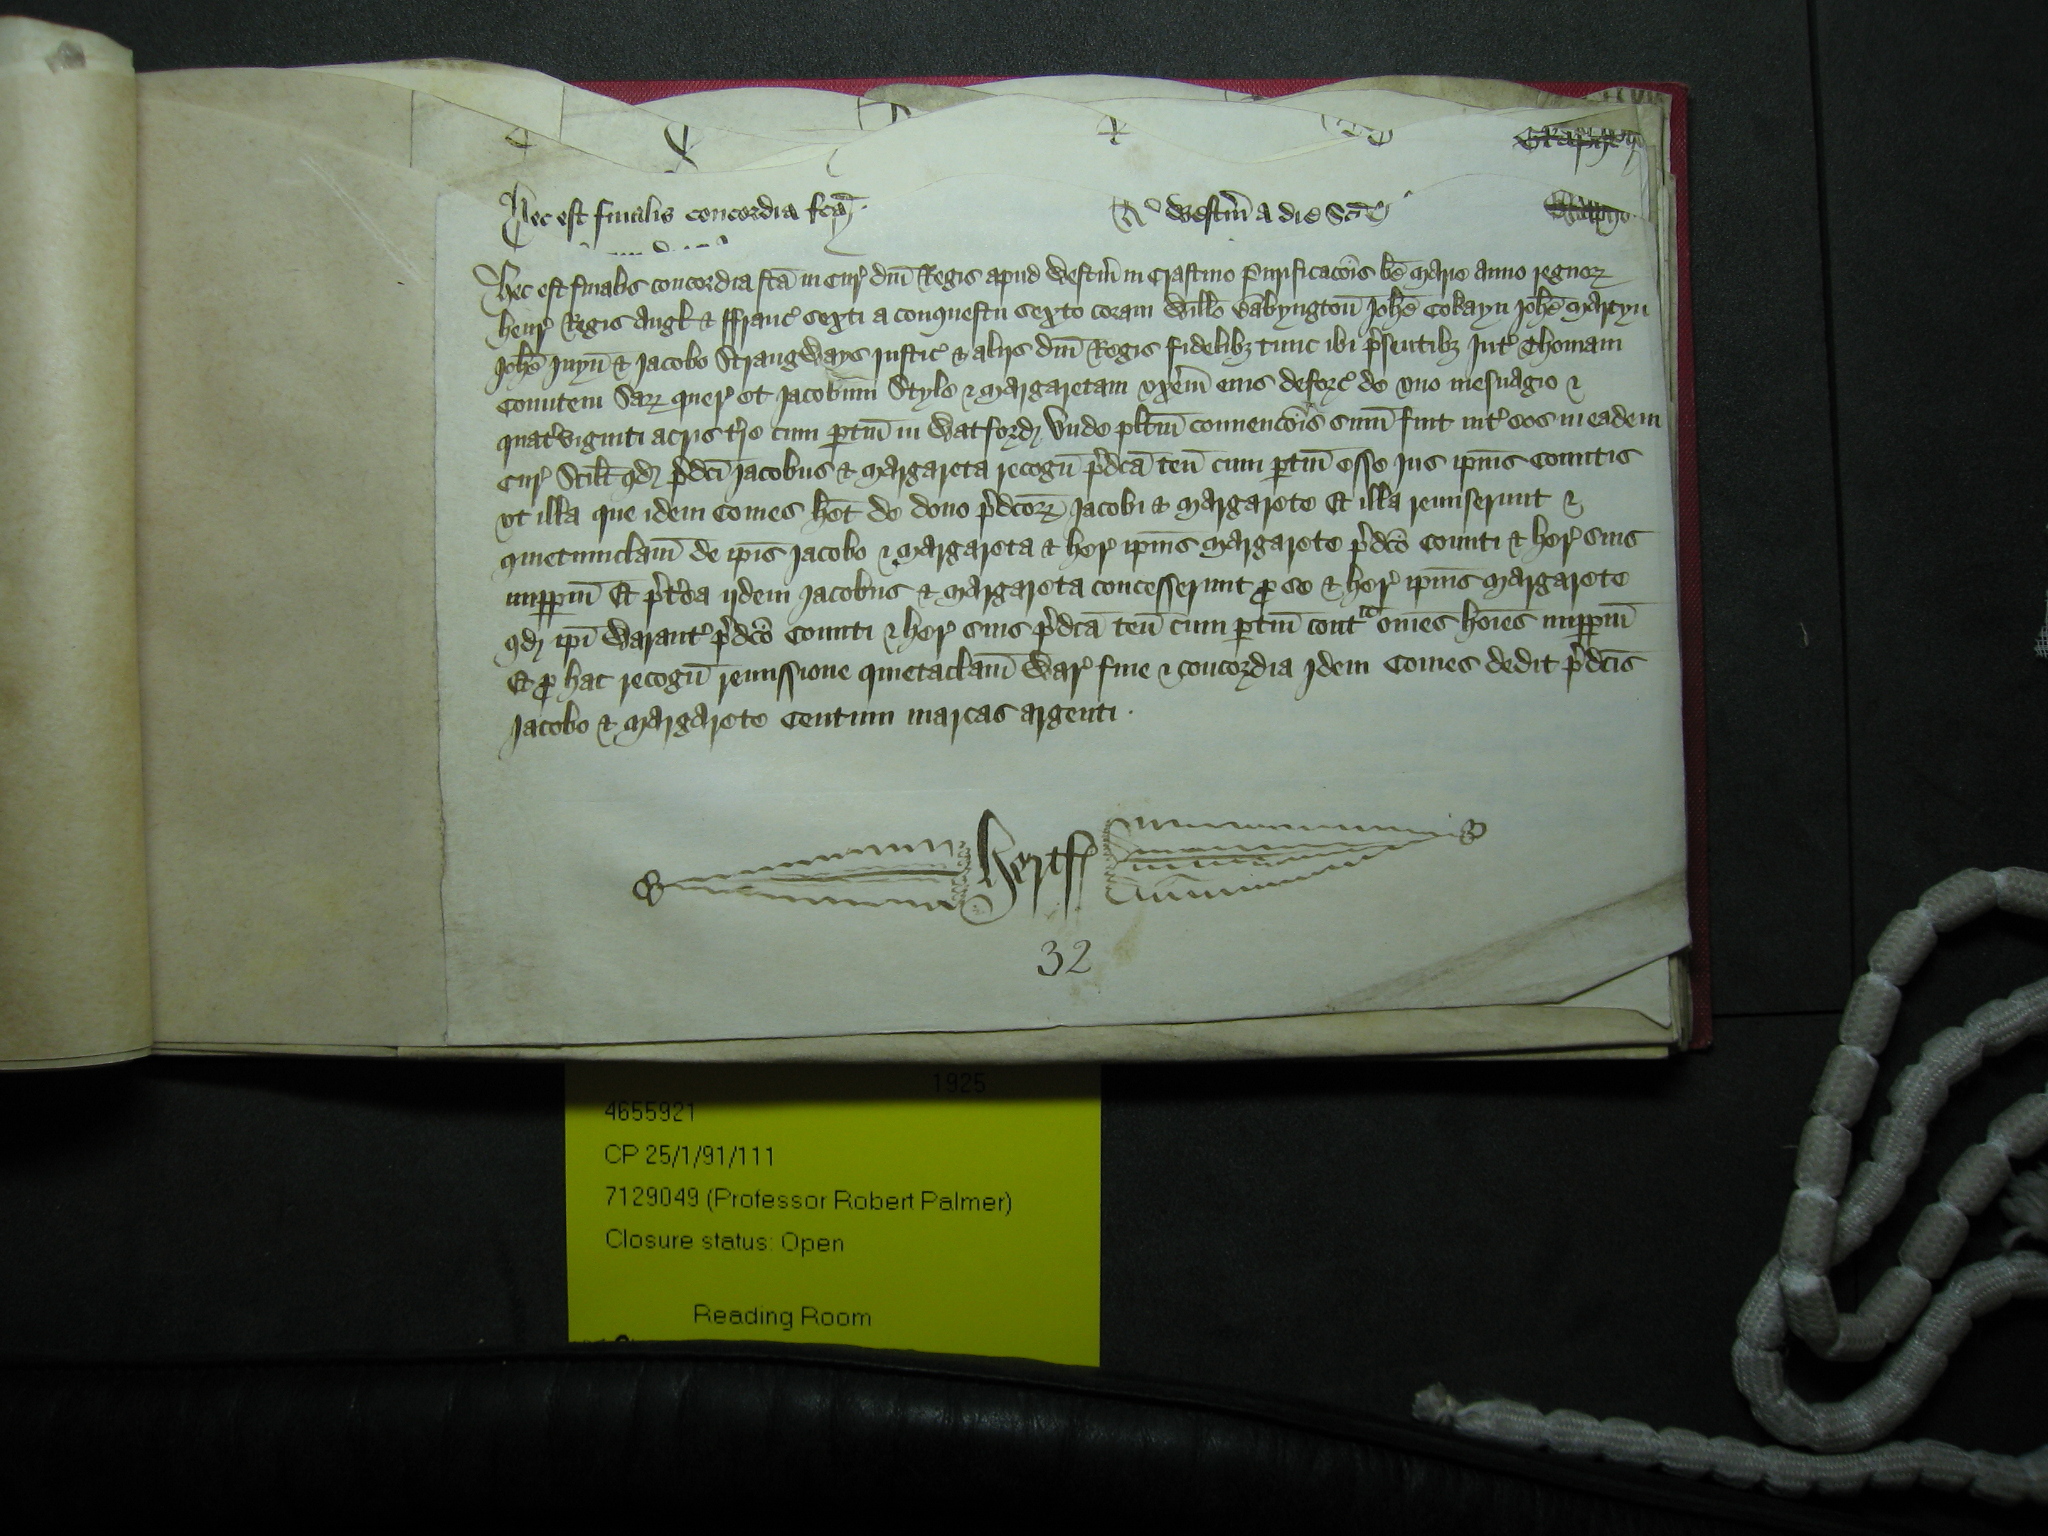 Hec est finalis concordia fca
Westm̄ a die Sc̄e
Hec est finalis concordia fc̄a in Cur̉ dn̄i Regis apud Westm̄ in Crastino Purificac̄ois bē Marie anno regnoꝝ
Henr̉ Regis Angl̉ & Franc̉ sexti a conquestu sexto coram Will̄o Babyngton̄ Joh̄e Cokayn Joh̄e Martyn
Joh̄e Juyn̄ & Jacobo Strangways Justic̉ & aliis dn̄i Regis fidelibꝫ tunc ibi p̉sentibꝫ Int̉ Thomam
Comitem Saꝝ quer̉ et Jacobum Style & Margaretam vxēm eius deforc̉ de vno mesuagio &
quat̉viginti acris t̉re cum ptin̄ in Watford Vnde pl̄itm conuenc̄ois sum̄ fuit int̉ eos in eadem
Cur̉ Scil̄t qd p̉dc̄i Jacobus & Margareta recogn̄ p̉dc̄a ten̄ cum ptin̄ esse Jus ip̄ius Comitis
vt illa que idem Comes h̄et de dono p̉dc̄oꝝ Jacobi & Margarete Et illa remiserunt &
quietumclam̄ de ip̄is Jacobo & Margareta & her̉ ip̄ius Margarete p̉dc̄o Comiti & her̉ suis
imppm̄ Et p̉t̉ea ijdem Jacobus & Margareta concesserunt ꝓ se & her̉ ip̄ius Margarete
qd ip̄i Warant̉ p̉dc̄o Comiti & her̉ suis p̉dc̄a ten̄ cum ptin̄ cont̉ om̄es hoīes imppm̄
Et ꝓ hac recogn̄ remissione quietaclam̄ War̉ fine & concordia idem Comes dedit p̉dc̄is
Jacobo & Margarete Centum marcas argenti .
Hertf̉
32
1925
4655921
CP 25/1/91/111
7129049 (Professor Robert Palmer)
Closure status: Open
Reading Room